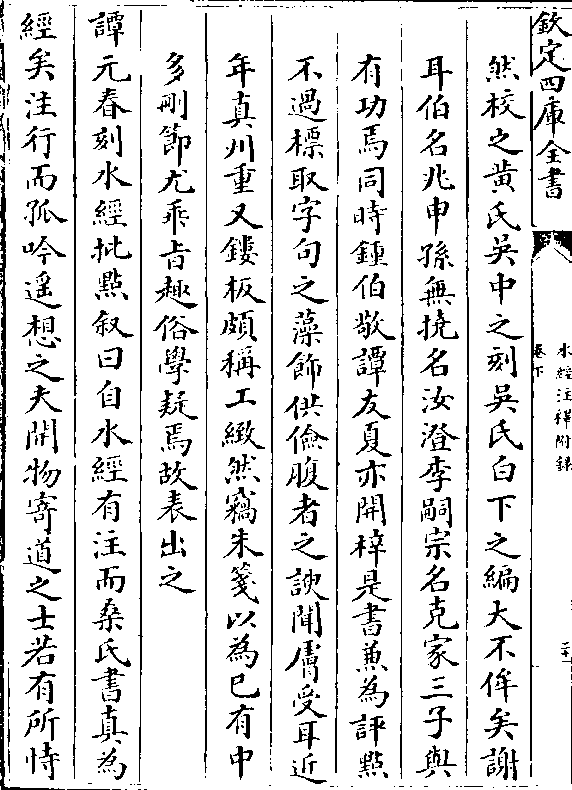 欽定四庫全書
水經注釋附錄
卷下
然校之黄氏吳中之刻吳氏白下之編大不侔矣謝
耳伯名兆申孫無撓名汝澄李嗣宗名克家三子與
有功焉同時鍾伯敬譚友夏亦開梓是書兼為評點
不過標取字句之藻飾供儉腹者之諛聞膚受耳近
年真州重又鏤板頗稱工緻然竊朱箋以為已有中
多刪節尤乖旨趣俗學疑焉故表出之
譚元春刻水經批點叙曰自水經有注而桑氏書真為
經矣注行而孤吟遥想之夫開物寄道之士若有所恃